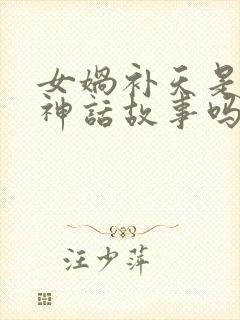 女娲补天是
神话故事吗
汪少萍